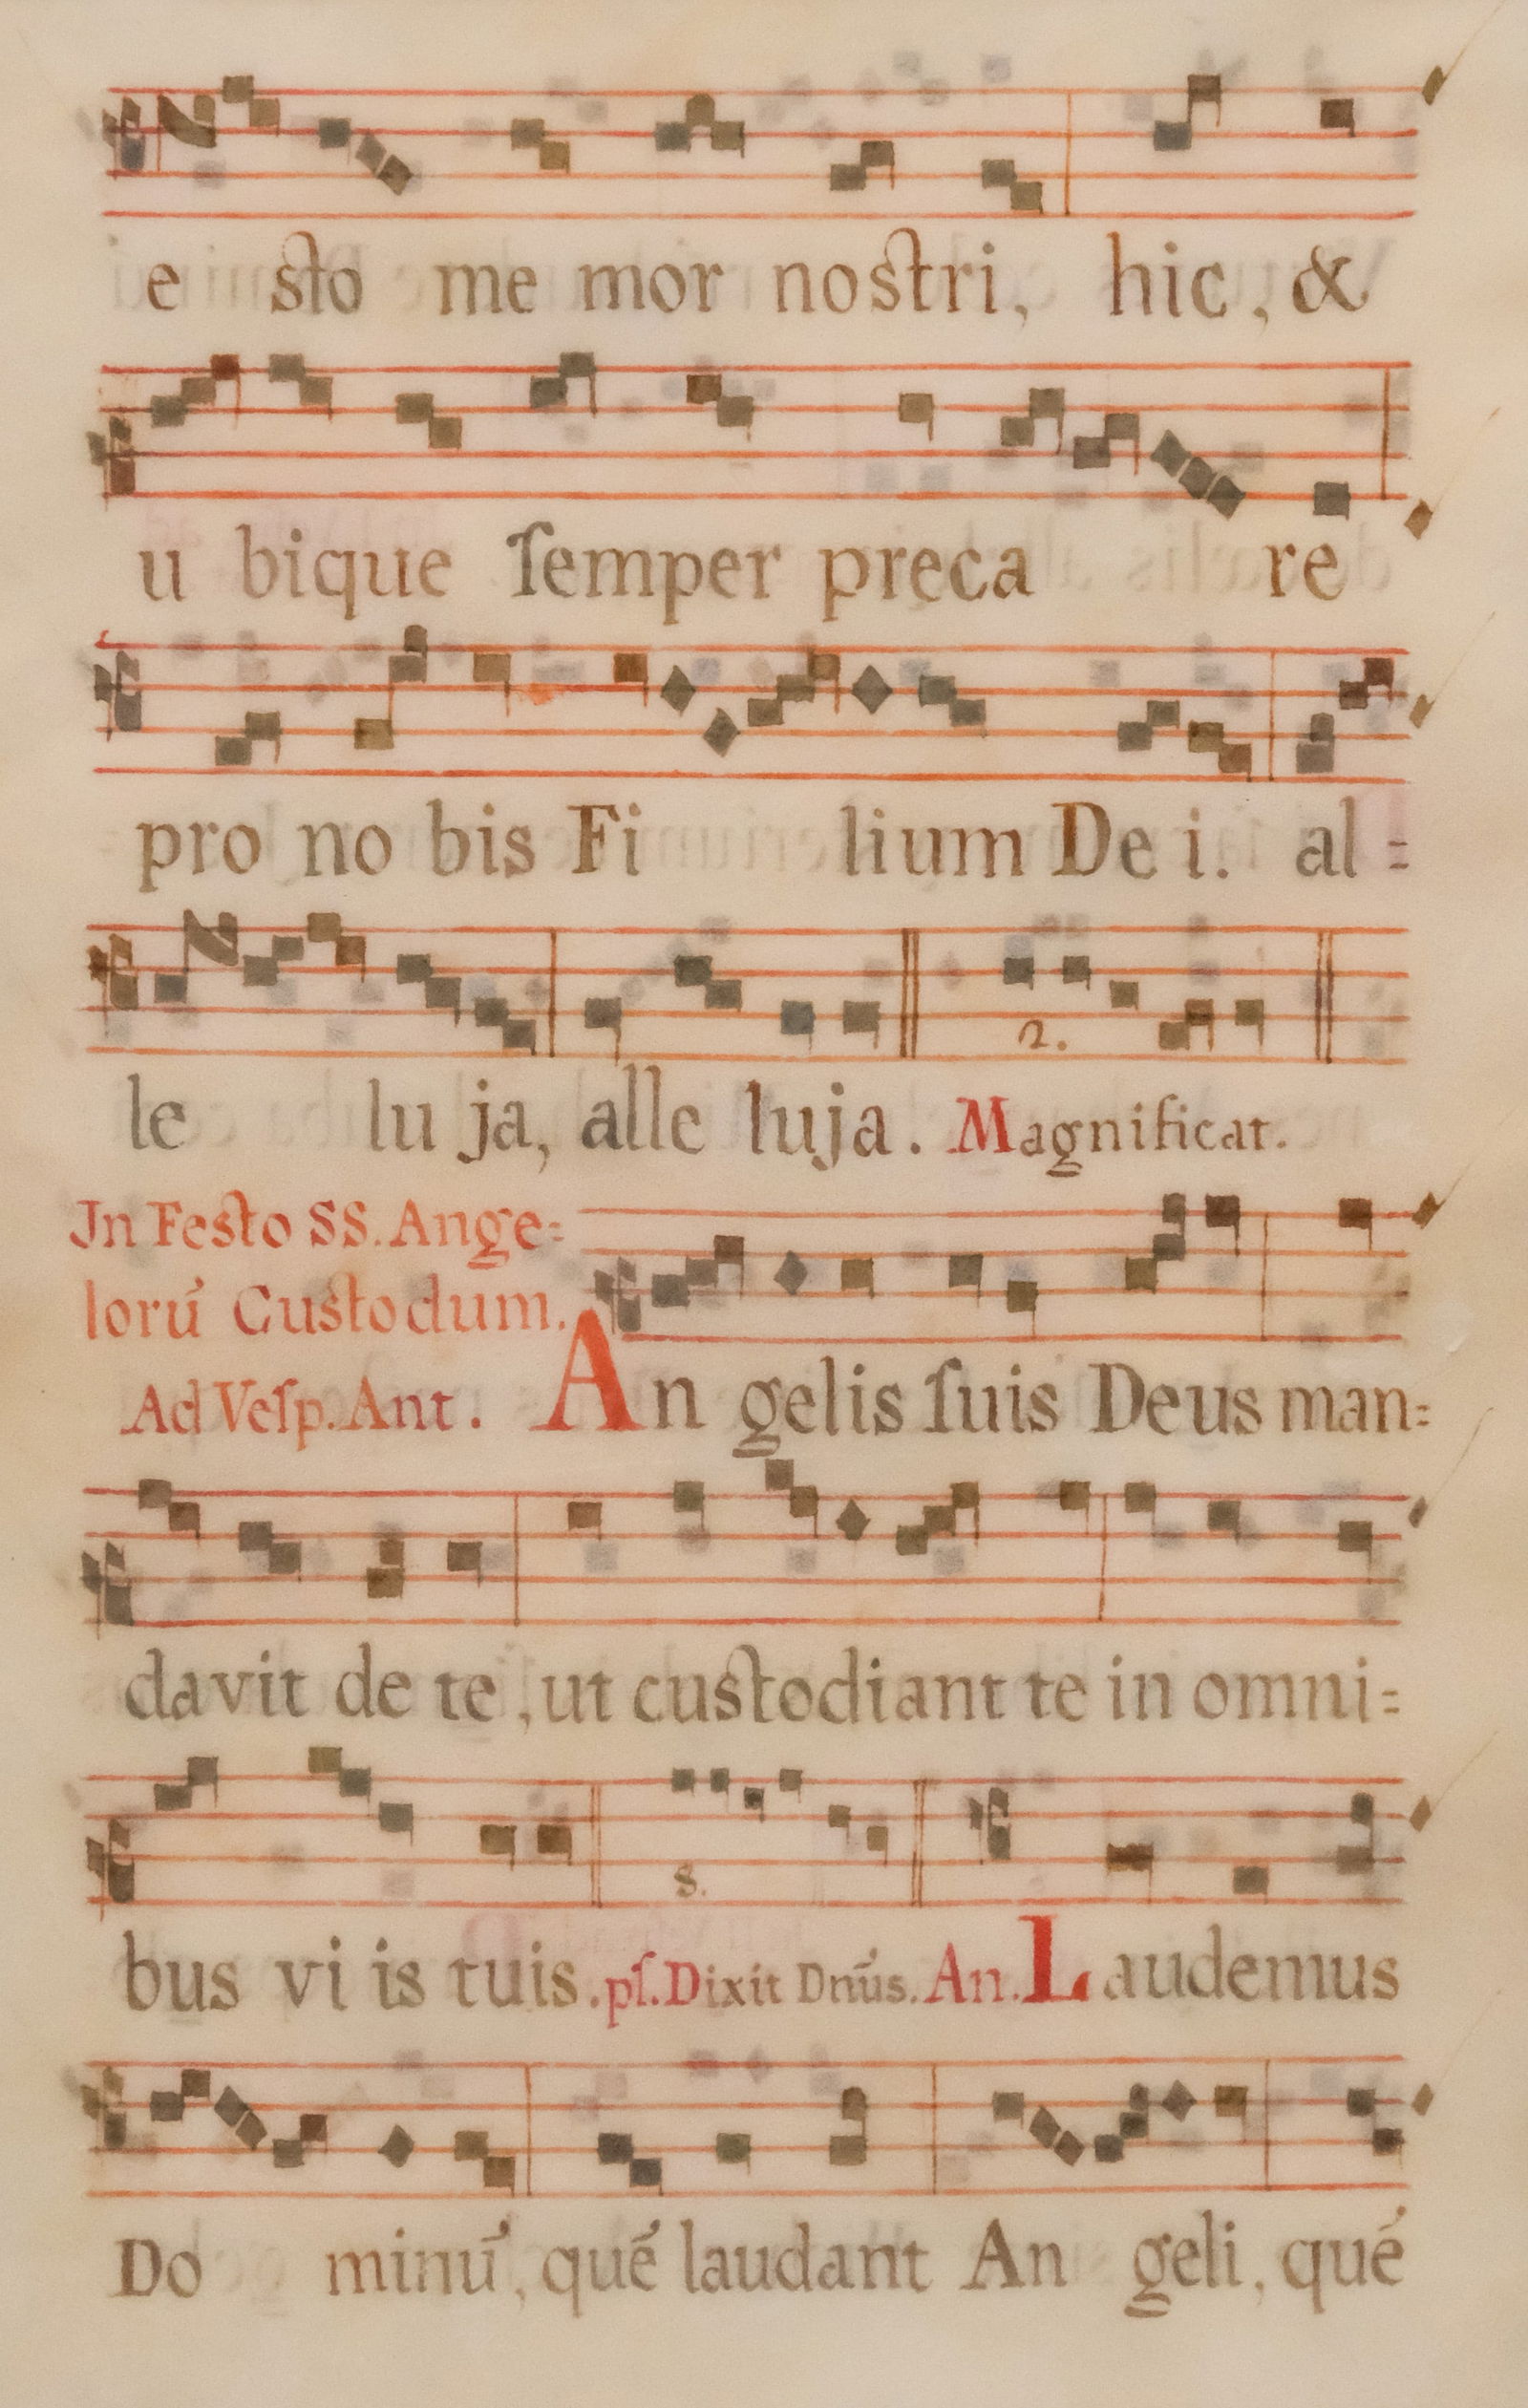 e sto me mor nostri, hic, &
u bique ſemper preca re
pro no bis Fi lium De i. al=
2.
le lu ja, alle luja. Magnificat.
Jn Festo SS. Ange=
lorú Custodum.
Ad Veſp. Ant. An gelis ſuis Deus man=
davit de te, ut custodiant te in omni=
8.
bus vi is tuis. pſ. Dixit Dnús. An. Laudemus
Do minú, qué laudant An geli, qué